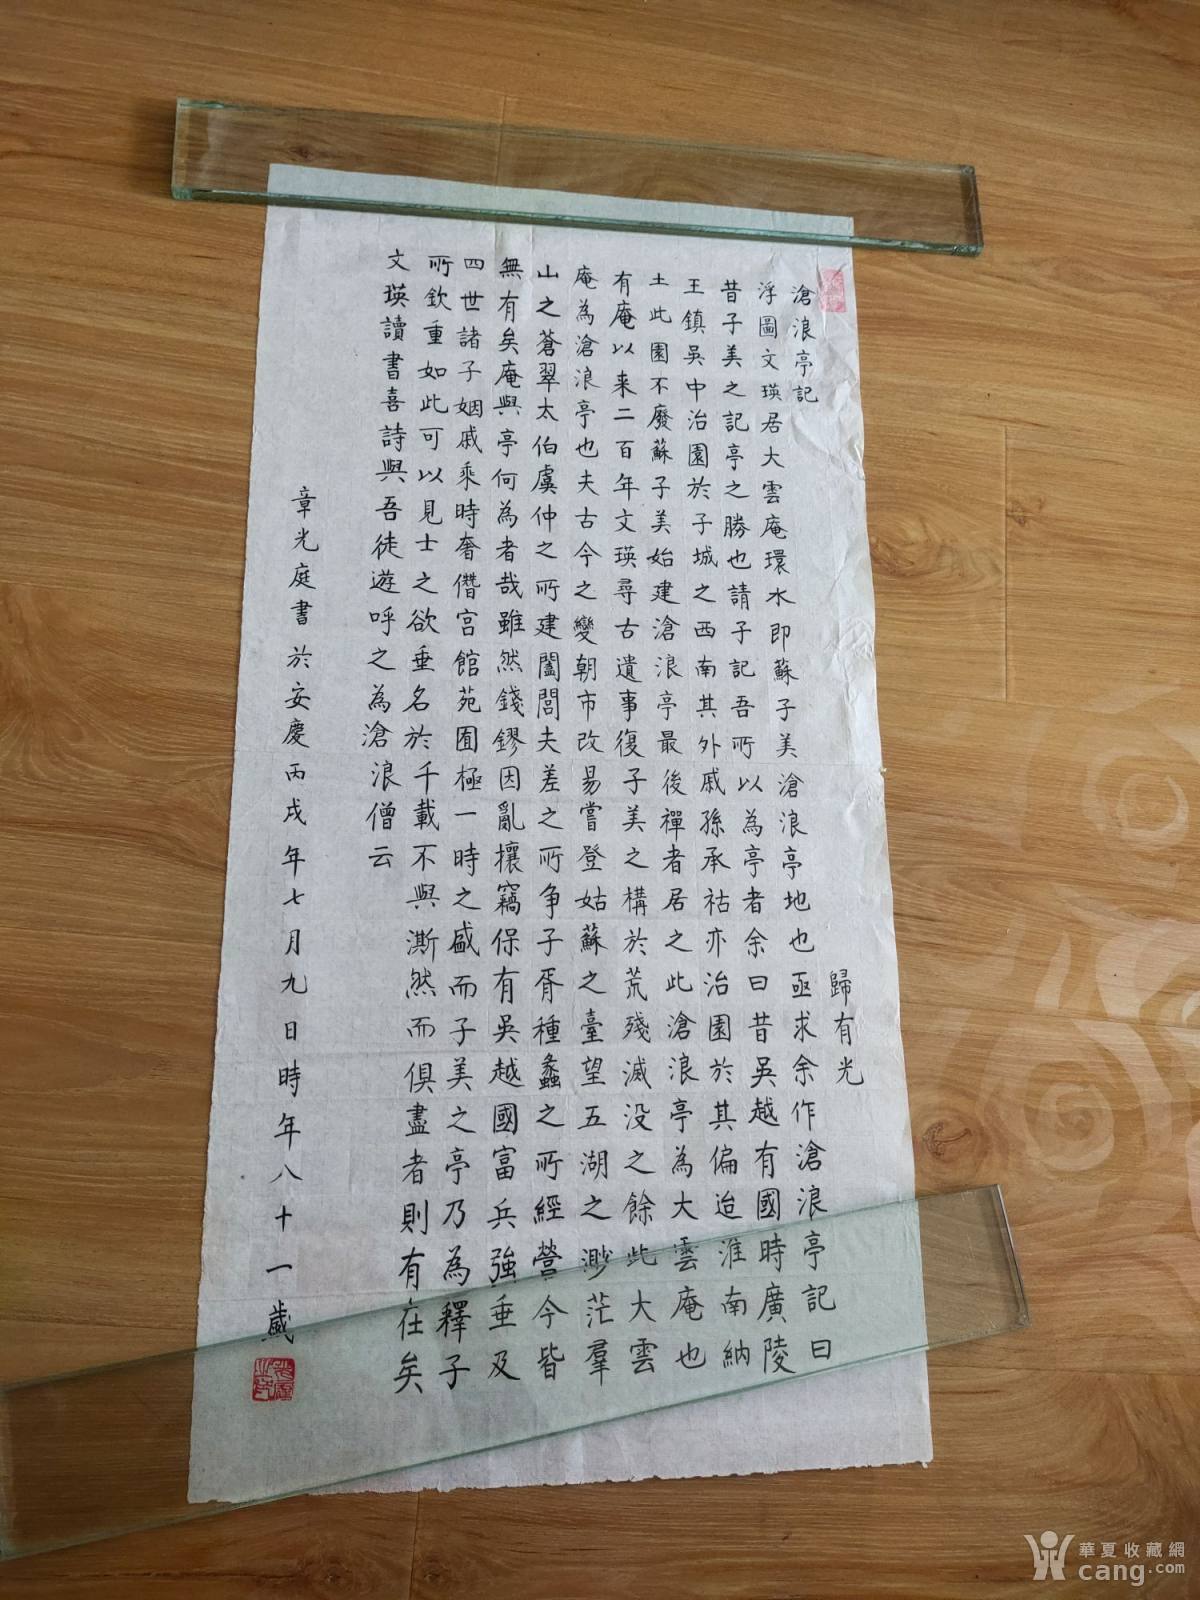 滄浪亭記 歸有光
浮圖文瑛居大雲庵環水即蘇子美滄浪亭地也亟求余作滄浪亭記曰
昔子美之記亭之勝也請子記吾所以為亭者余曰昔吳越有國時廣陵
王鎮吳中治園於子城之西南其外戚孫承祜亦治園於其偏迨淮南納
土此園不廢蘇子美始建滄浪亭最後禪者居之此滄浪亭為大雲庵也
有庵以来二百年文瑛尋古遺事復子美之構於荒殘滅没之餘此大雲
庵為滄浪亭也夫古今之變朝市改易嘗登姑蘇之臺望五湖之渺茫羣
山之蒼翠太伯虞仲之所建闔閭夫差之所争子胥種蠡之所經營今皆
無有矣庵與亭何為者哉雖然錢鏐因亂攘竊保有吳越國富兵強垂及
四世諸子姻戚乘時奢僭宮館苑囿極一時之盛而子美之亭乃為釋子
所欽重如此可以見士之欲垂名於千載不與澌然而俱盡者則有在矣
文瑛讀書喜詩與吾徒遊呼之為滄浪僧云
章光庭書於安慶丙戌年七月九日時年八十一歲
華夏收藏網
cang.com